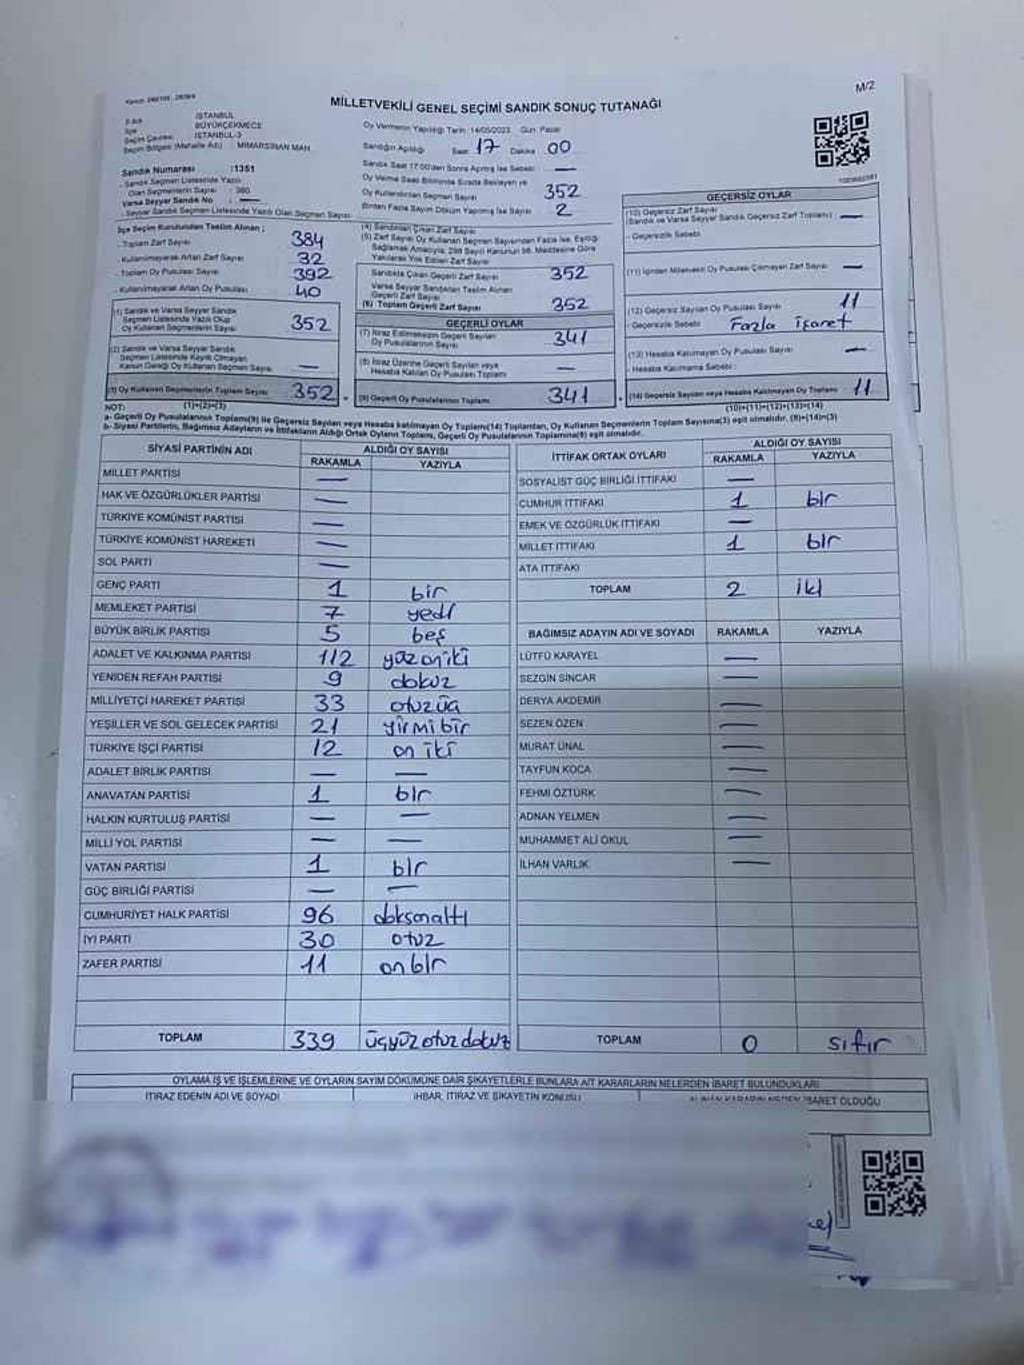 M/2
MİLLETVEKİLİ GENEL SEÇİMİ SANDIK SONUÇ TUTANAĞI
İSTANBUL
BÜYÜKÇEKMECE
İSTANBUL-3
MİMARSİNAN MAH.
Sandık Numarası :1351
- Sandık Seçmen Listesinde Yazılı
Olan Seçmenlerin Sayısı : 380
Varsa Seyyar Sandık No : —
- Seyyar Sandık Seçmen Listesinde Yazılı Olan Seçmen Sayısı
İlçe Seçim Kurulundan Teslim Alınan ;
- Toplam Zarf Sayısı 384
- Kullanılmayarak Artan Zarf Sayısı 32
- Toplam Oy Pusulası Sayısı 392
- Kullanılmayarak Artan Oy Pusulası 40
(1) Sandık ve Varsa Seyyar Sandık
Seçmen Listesinde Yazılı Olup
Oy Kullanan Seçmenlerin Sayısı 352
(2) Sandık ve Varsa Seyyar Sandık
Seçmen Listesinde Kayıtlı Olmayan
Kanun Gereği Oy Kullanan Seçmen Sayısı —
(3) Oy Kullanan Seçmenlerin Toplam Sayısı 352
(1)+(2)=(3)
Oy Vermenin Yapıldığı Tarih: 14/05/2023 Gün: Pazar
Sandığın Açıldığı Saat 17 Dakika 00
Sandık Saat 17:00'den Sonra Açılmış İse Sebebi: —
Oy Verme Saati Bitiminde Sırada Bekleyen ve
Oy Kullandırılan Seçmen Sayısı 352
Birden Fazla Sayım Döküm Yapılmış İse Sayısı 2
(4) Sandıktan Çıkan Zarf Sayısı
(5) Zarf Sayısı Oy Kullanan Seçmen Sayısından Fazla İse, Eşitliği
Sağlamak Amacıyla, 298 Sayılı Kanunun 98. Maddesine Göre
Yakılarak Yok Edilen Zarf Sayısı
Sandıkta Çıkan Geçerli Zarf Sayısı 352
Varsa Seyyar Sandıktan Teslim Alınan
Geçerli Zarf Sayısı
(6) Toplam Geçerli Zarf Sayısı 352
GEÇERLİ OYLAR
(7) İtiraz Edilmeksizin Geçerli Sayılan
Oy Pusulalarının Sayısı 341
(8) İtiraz Üzerine Geçerli Sayılan veya
Hesaba Katılan Oy Pusulası Toplamı —
(9) Geçerli Oy Pusulalarının Toplamı 341
GEÇERSİZ OYLAR
(10) Geçersiz Zarf Sayısı
(Sandık ve Varsa Seyyar Sandık Geçersiz Zarf Toplamı) —
- Geçersizlik Sebebi:
(11) İçinden Milletvekili Oy Pusulası Çıkmayan Zarf Sayısı —
(12) Geçersiz Sayılan Oy Pusulası Sayısı 11
- Geçersizlik Sebebi: Fazla işaret
(13) Hesaba Katılmayan Oy Pusulası Sayısı —
- Hesaba Katılmama Sebebi :
(14) Geçersiz Sayılan veya Hesaba Katılmayan Oy Toplamı 11
(10)+(11)+(12)+(13)=(14)
NOT:
a- Geçerli Oy Pusulalarının Toplamı(9) ile Geçersiz Sayılan veya Hesaba katılmayan Oy Toplamı(14) Toplamları, Oy Kullanan Seçmenlerin Toplam Sayısına(3) eşit olmalıdır. (9)+(14)=(3)
b- Siyasi Partilerin, Bağımsız Adayların ve İttifakların Aldığı Ortak Oyların Toplamı, Geçerli Oy Pusulalarının Toplamına(9) eşit olmalıdır.
SİYASİ PARTİNİN ADI ALDIĞI OY SAYISI
RAKAMLA YAZIYLA
MİLLET PARTİSİ —
HAK VE ÖZGÜRLÜKLER PARTİSİ —
TÜRKİYE KOMÜNİST PARTİSİ —
TÜRKİYE KOMÜNİST HAREKETİ —
SOL PARTİ —
GENÇ PARTİ 1 bir
MEMLEKET PARTİSİ 7 yedi
BÜYÜK BİRLİK PARTİSİ 5 beş
ADALET VE KALKINMA PARTİSİ 112 yüzoniki
YENİDEN REFAH PARTİSİ 9 dokuz
MİLLİYETÇİ HAREKET PARTİSİ 33 otuzüç
YEŞİLLER VE SOL GELECEK PARTİSİ 21 yirmibir
TÜRKİYE İŞÇİ PARTİSİ 12 on iki
ADALET BİRLİK PARTİSİ — —
ANAVATAN PARTİSİ 1 bir
HALKIN KURTULUŞ PARTİSİ — —
MİLLİ YOL PARTİSİ — —
VATAN PARTİSİ 1 bir
GÜÇ BİRLİĞİ PARTİSİ — —
CUMHURİYET HALK PARTİSİ 96 doksanaltı
İYİ PARTİ 30 otuz
ZAFER PARTİSİ 11 on bir
TOPLAM 339 üçyüzotuzdokuz
İTTİFAK ORTAK OYLARI ALDIĞI OY SAYISI
RAKAMLA YAZIYLA
SOSYALİST GÜÇ BİRLİĞİ İTTİFAKI —
CUMHUR İTTİFAKI 1 bir
EMEK VE ÖZGÜRLÜK İTTİFAKI —
MİLLET İTTİFAKI 1 bir
ATA İTTİFAKI
TOPLAM 2 iki
BAĞIMSIZ ADAYIN ADI VE SOYADI RAKAMLA YAZIYLA
LÜTFÜ KARAYEL —
SEZGİN SİNCAR —
DERYA AKDEMİR —
SEZEN ÖZEN —
MURAT ÜNAL —
TAYFUN KOCA —
FEHMİ ÖZTÜRK —
ADNAN YELMEN —
MUHAMMET ALİ OKUL —
İLHAN VARLIK —
TOPLAM 0 sıfır
OYLAMA İŞ VE İŞLEMLERİNE VE OYLARIN SAYIM DÖKÜMÜNE DAİR ŞİKAYETLERLE BUNLARA AİT KARARLARIN NELERDEN İBARET BULUNDUKLARI
İTİRAZ EDENİN ADI VE SOYADI İHBAR, İTİRAZ VE ŞİKAYETİN KONUSU ALINAN KARARIN NEDEN İBARET OLDUĞU